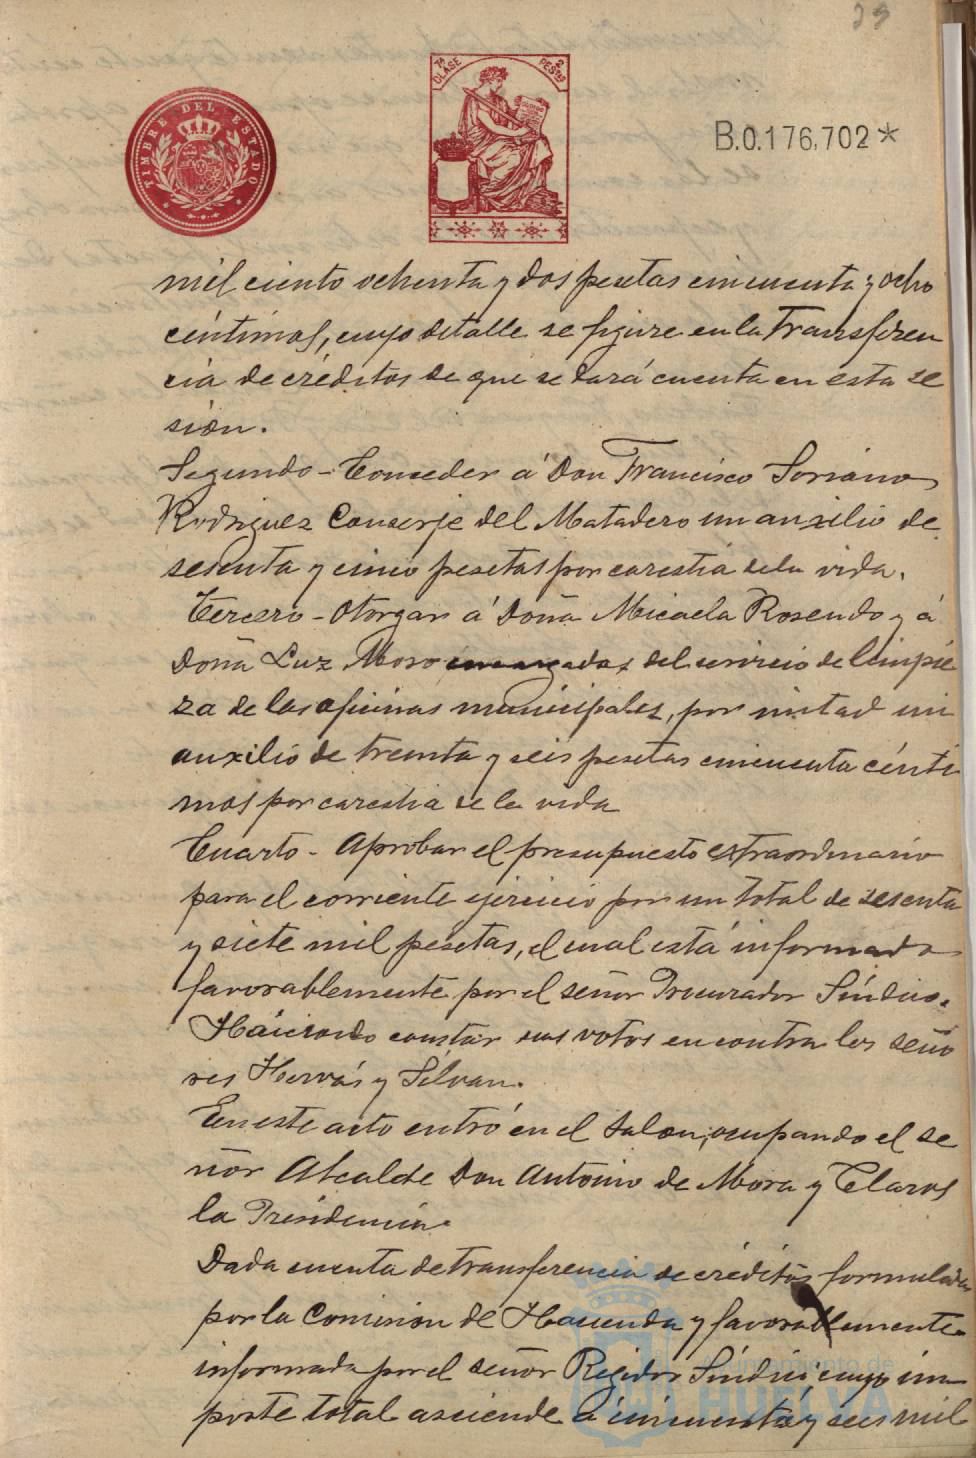 29
TIMBRE DEL ESTADO
7ª CLASE
2 PESTAS
B.0.176,702*
mil ciento ochenta y dos pesetas cincuenta y ocho
céntimos, cuyo detalle se figure en la Transferen
cia de créditos de que se dará cuenta en esta se
sión.
Segundo - Conseder á Don Francisco Soriano
Rodriguez Conserje del Matadero un auxilio de
sesenta y cinco pesetas por carestia dela vida.
Tercero - Otorgar á Doña Micaela Rosendo y á
Doña Luz Moro encargadas del servicio de limpie
za de las oficinas municipales, por mitad un
auxilio de treinta y seis pesetas cincuenta cénti
mos por carestia de la vida
Cuarto - Aprobar el presupuesto extraordinario
para el corriente ejercicio por un total de sesenta
y siete mil pesetas, el cual está informado
favorablemente por el señor Procurador Síndico.
Haciendo constar sus votos en contra los seño
res Hervás y Silvan.
En este acto entró en el Salon, ocupando el se
ñor Alcalde Don Antonio de Mora y Claros
la Presidencia.
Dada cuenta de transferencia de créditos formulada
por la Comision de Hacienda y favorablemente
informada por el señor Regidor Síndico cuyo im
porte total asciende á cincuenta y seis mil
Ayuntamiento de
HUELVA